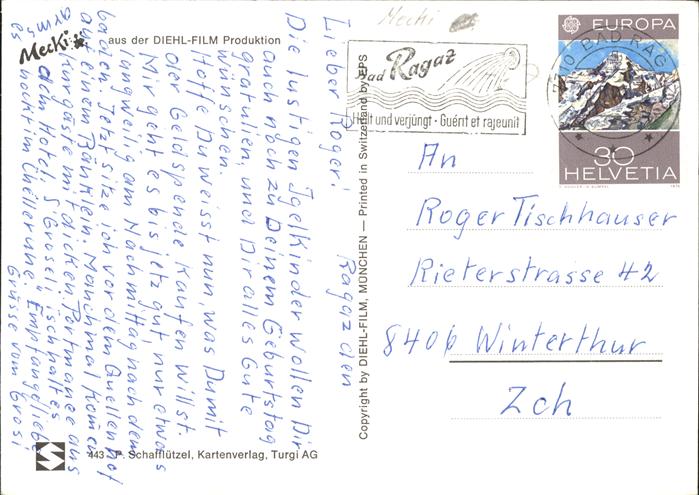 Mecki
EUROPA
30
HELVETIA
Mecki aus der DIEHL-FILM Produktion
BAD RAG
Bad Ragaz
Heilt und verjüngt · Guérit et rajeunit
An
Roger Tischhauser
Rieterstrasse 42
8406 Winterthur
Zch
Copyright by DIEHL-FILM, MÜNCHEN — Printed in Switzerland by EPS
Ragaz den
Lieber Roger!
Die lustigen Igelkinder wollen Dir
auch noch zu Deinem Geburtstag
gratulieren, und Dir alles Gute
wünschen.
Hoffe Du weisst nun, was Du mit
der Geldspende kaufen willst.
Mir geht es bis jetz gut, nur etwas
langweilig am Nachmittag nach dem
baden. Jetzt sitze ich vor dem Quellenhof
auf einem Bänklein. Manchmal komen
Kurgäste mit dicken Portmanee aus
dem Hotel. S'Groseli isch halt es
arms es hockt im Chellerune. Empfange liebe
Grüsse vom Grosi
443 P. Schafflützel, Kartenverlag, Turgi AG